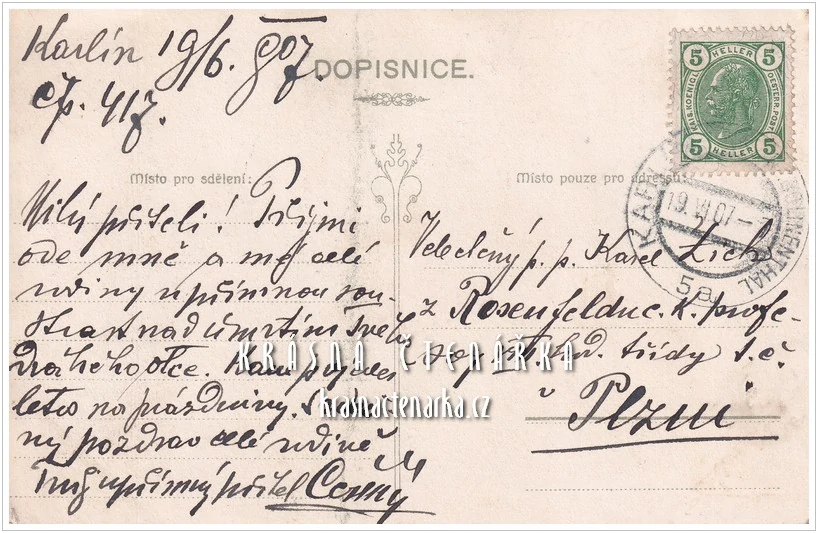 Karlín 19/6. 907.
čp. 417.
DOPISNICE.
5 HELLER 5
KAIS. KOENIGL. OESTERR. POST
5 HELLER 5
KARLÍN
KAROLINENTHAL
19. VI. 07
5a
Místo pro sdělení:
Místo pouze pro adressu:
Milý příteli! Přijmi
ode mně a mé celé
rodiny upřímnou sou-
strast nad úmrtím Tvého
drahého otce. Kam pojedeš
letos na prázdniny. Srdeč-
ný pozdrav celé rodině
Tvůj upřímný přítel Černý
Velectěný p. p. Karel Zich
z Rosenfeldu c. k. profe-
sor st. prů. třídy t. č.
v Plzni
KRÁSNÁ ČTENÁŘKA
krasnactenarka.cz